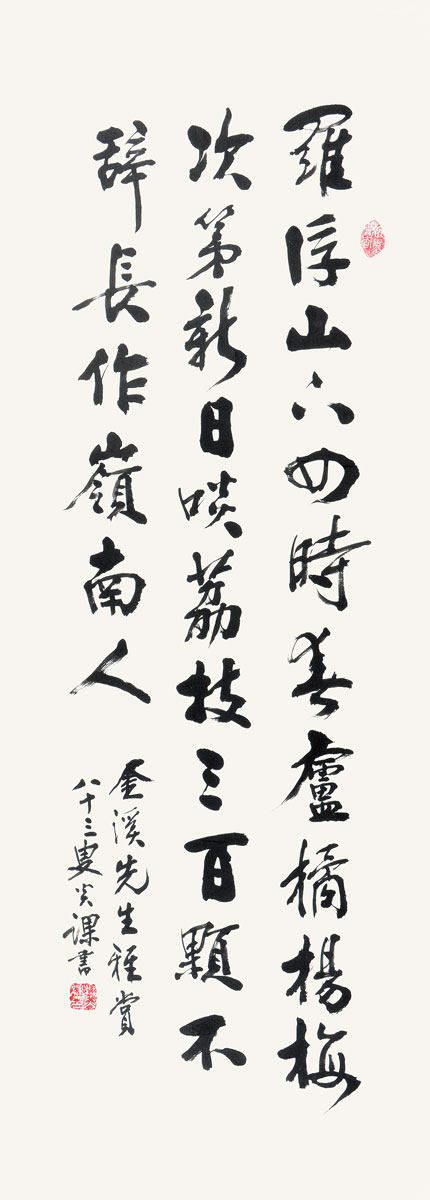 羅浮山下四時春盧橘楊梅
次第新日啖荔枝三百顆不
辭長作嶺南人
金溪先生雅賞
八十三叟課書